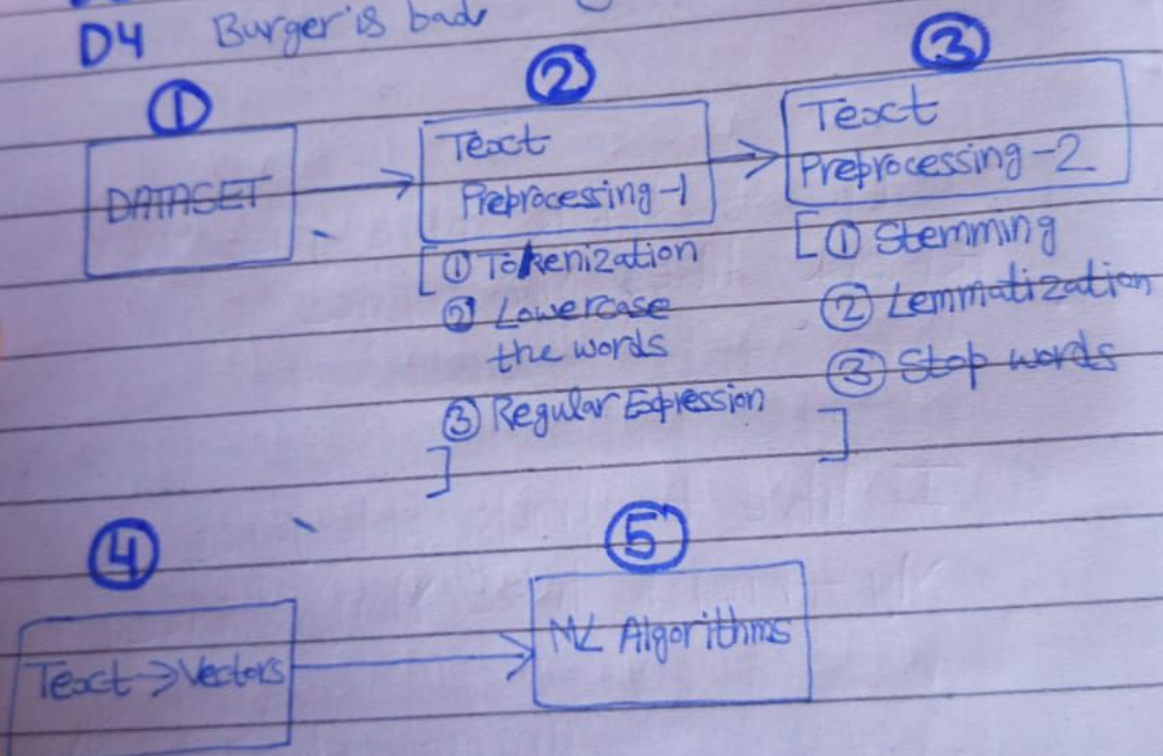 D4 Burger is bad
①
DATASET
②
Text
Preprocessing-1
[① Tokenization
② Lowercase
the words
③ Regular Expression
]
③
Text
Preprocessing-2
[① Stemming
② Lemmatization
③ Stop words
]
④
Text → Vectors
⑤
ML Algorithms